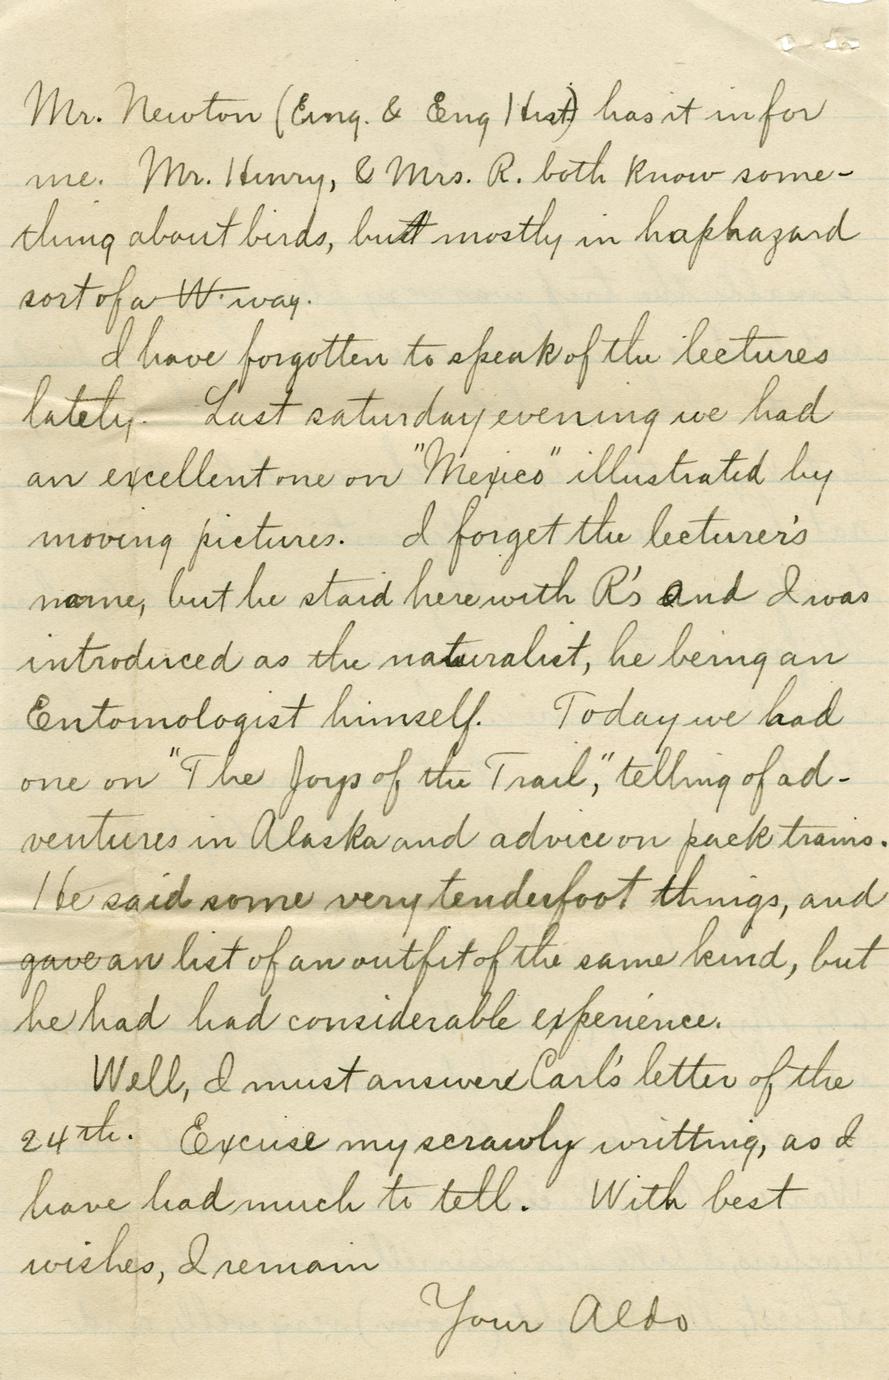 Mr. Newton (Eng. & Eng Hist) has it in for
me. Mr. Henry, & Mrs. R. both know some-
thing about birds, but mostly in haphazard
sort of a W way.
I have forgotten to speak of the lectures
lately. Last saturday evening we had
an excellent one on "Mexico" illustrated by
moving pictures. I forget the lecturer's
name, but he staid here with R's and I was
introduced as the naturalist, he being an
Entomologist himself. Today we had
one on "The Joys of the Trail," telling of ad-
ventures in Alaska and advice on pack trains.
He said some very tenderfoot things, and
gave an list of an outfit of the same kind, but
he had had considerable experience.
Well, I must answer Carl's letter of the
24th. Excuse my scrawly writting, as I
have had much to tell. With best
wishes, I remain
Your Aldo